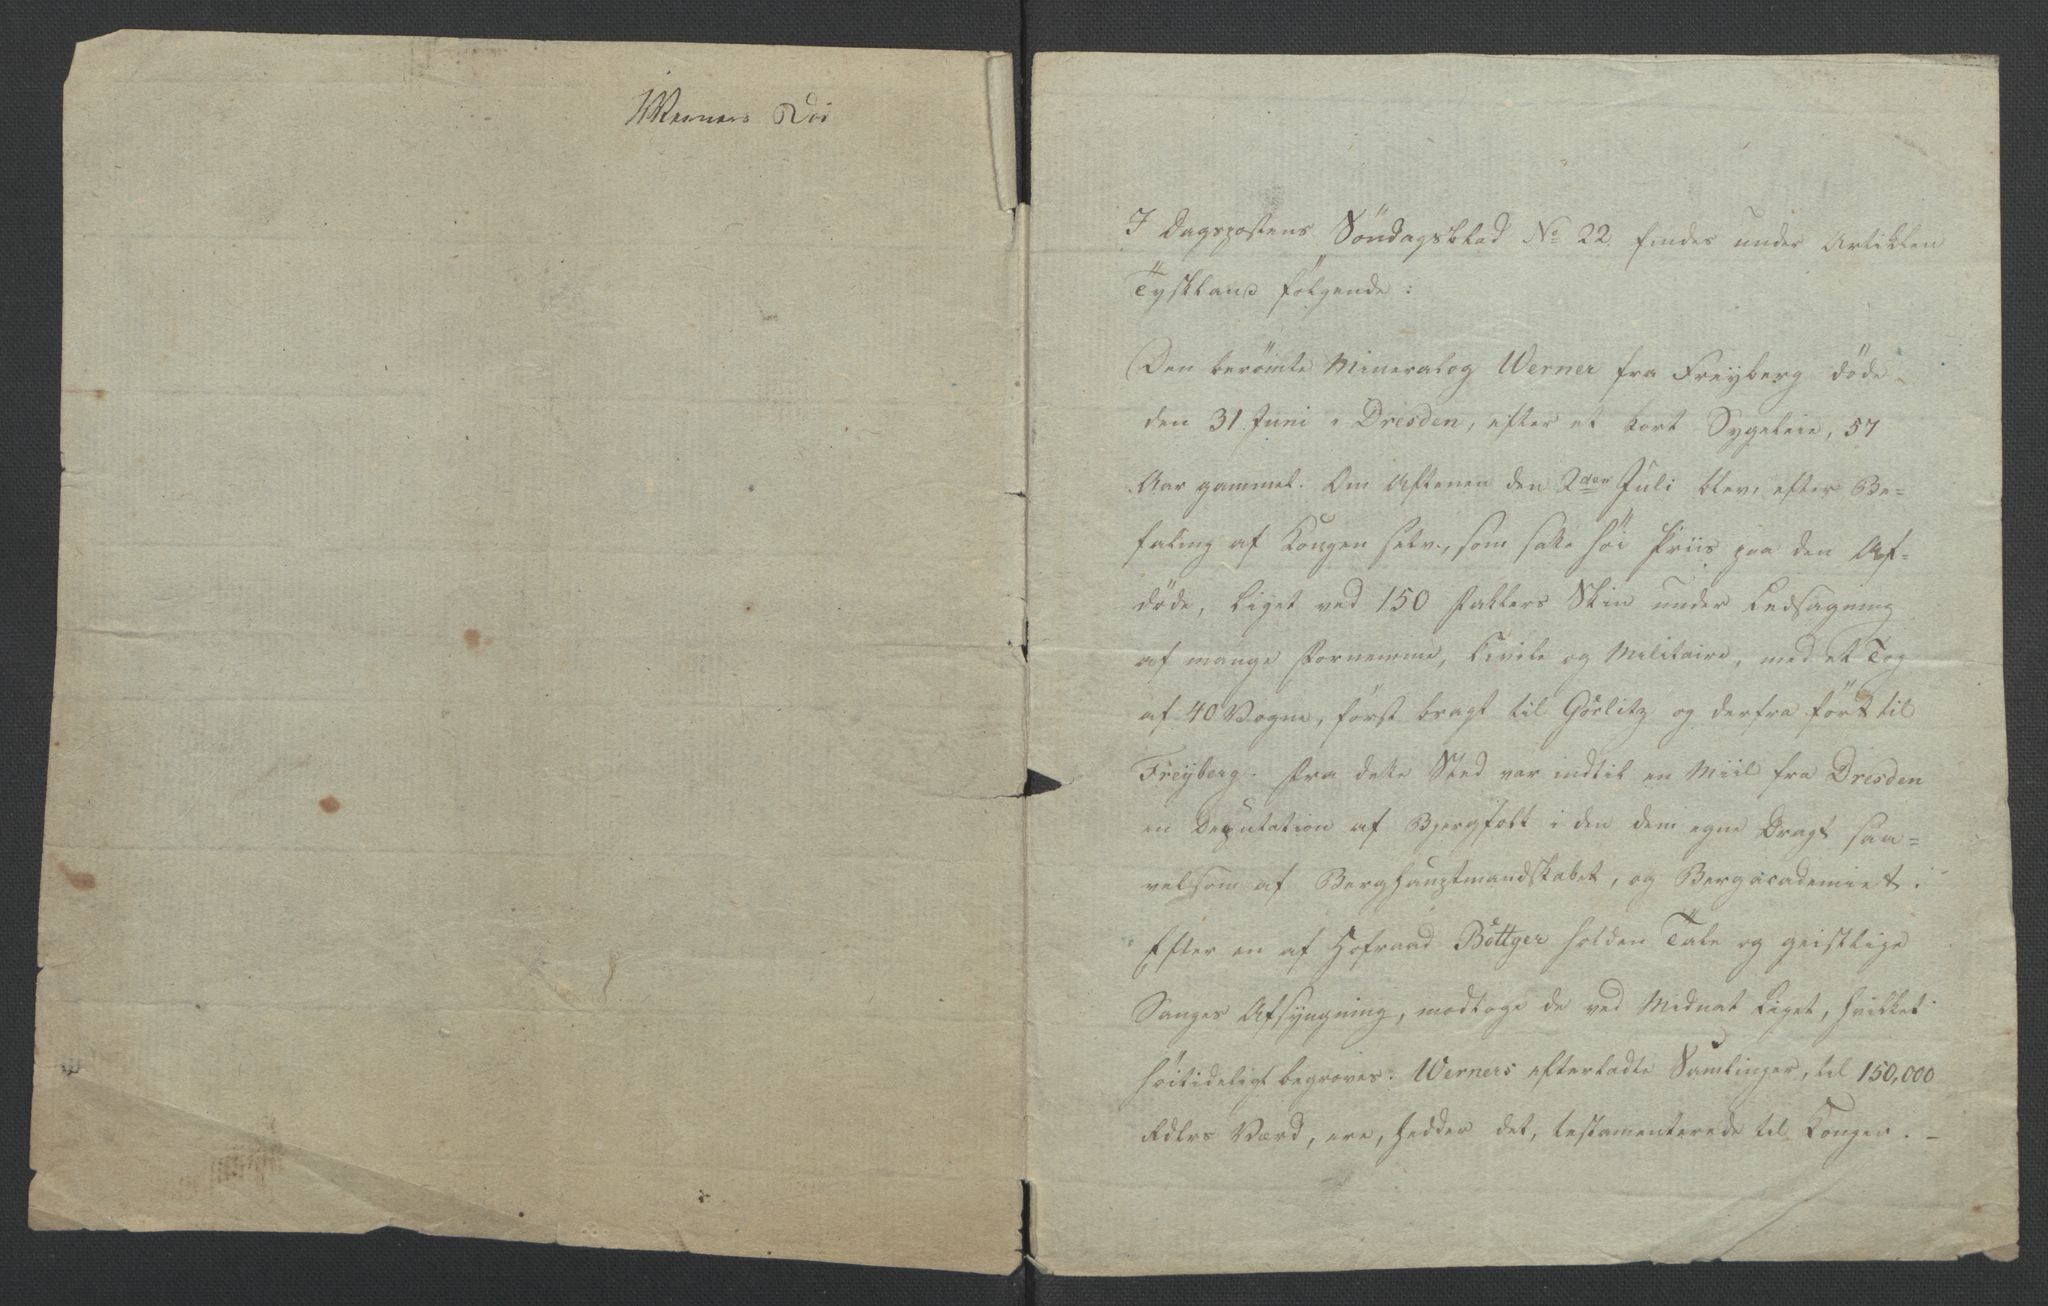 Werners Död
I Dagspostens Söndagsblad No 22 findes under Artiklen
Tyskland følgende:
Den berömte Mineralog Werner fra Freyberg döde
den 31 Juni i Dresden, efter et kort Sygeleie, 57
Aar gammel. Om Aftenen den 2den Juli blev, efter Be=
faling af Kongen selv, som satte høi Priis paa den Af=
döde, Liget ved 150 Faklers Skin under Ledsagning
af mange Fornemme, Civile og Militaire, med et Tog
af 40 Vogne, först bragt til Görlitz og derfra fört til
Freyberg. Fra dette Sted var indtil en Miil fra Dresden
en Deputation af Bjergfolk i den dem egne Dragt saa=
velsom af Berghauptmandskabet, og Bergacademiet.
Efter en af Hofraad Böttger holden Tale og geistlige
Sanges Afsyngning, modtoge de ved Midnat Liget, hvilket
höitideligt begroves. Werners efterladte Samlinger, til 150,000
Rdlrs Værd, ere, hedder det, testamenterede til Kongen. –